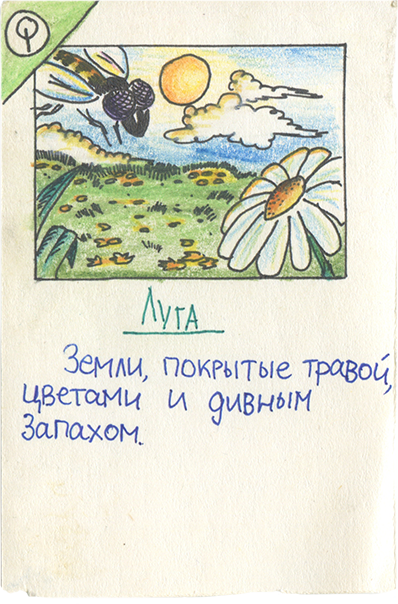 Луга
Земли, покрытые травой,
цветами и дивным
запахом.